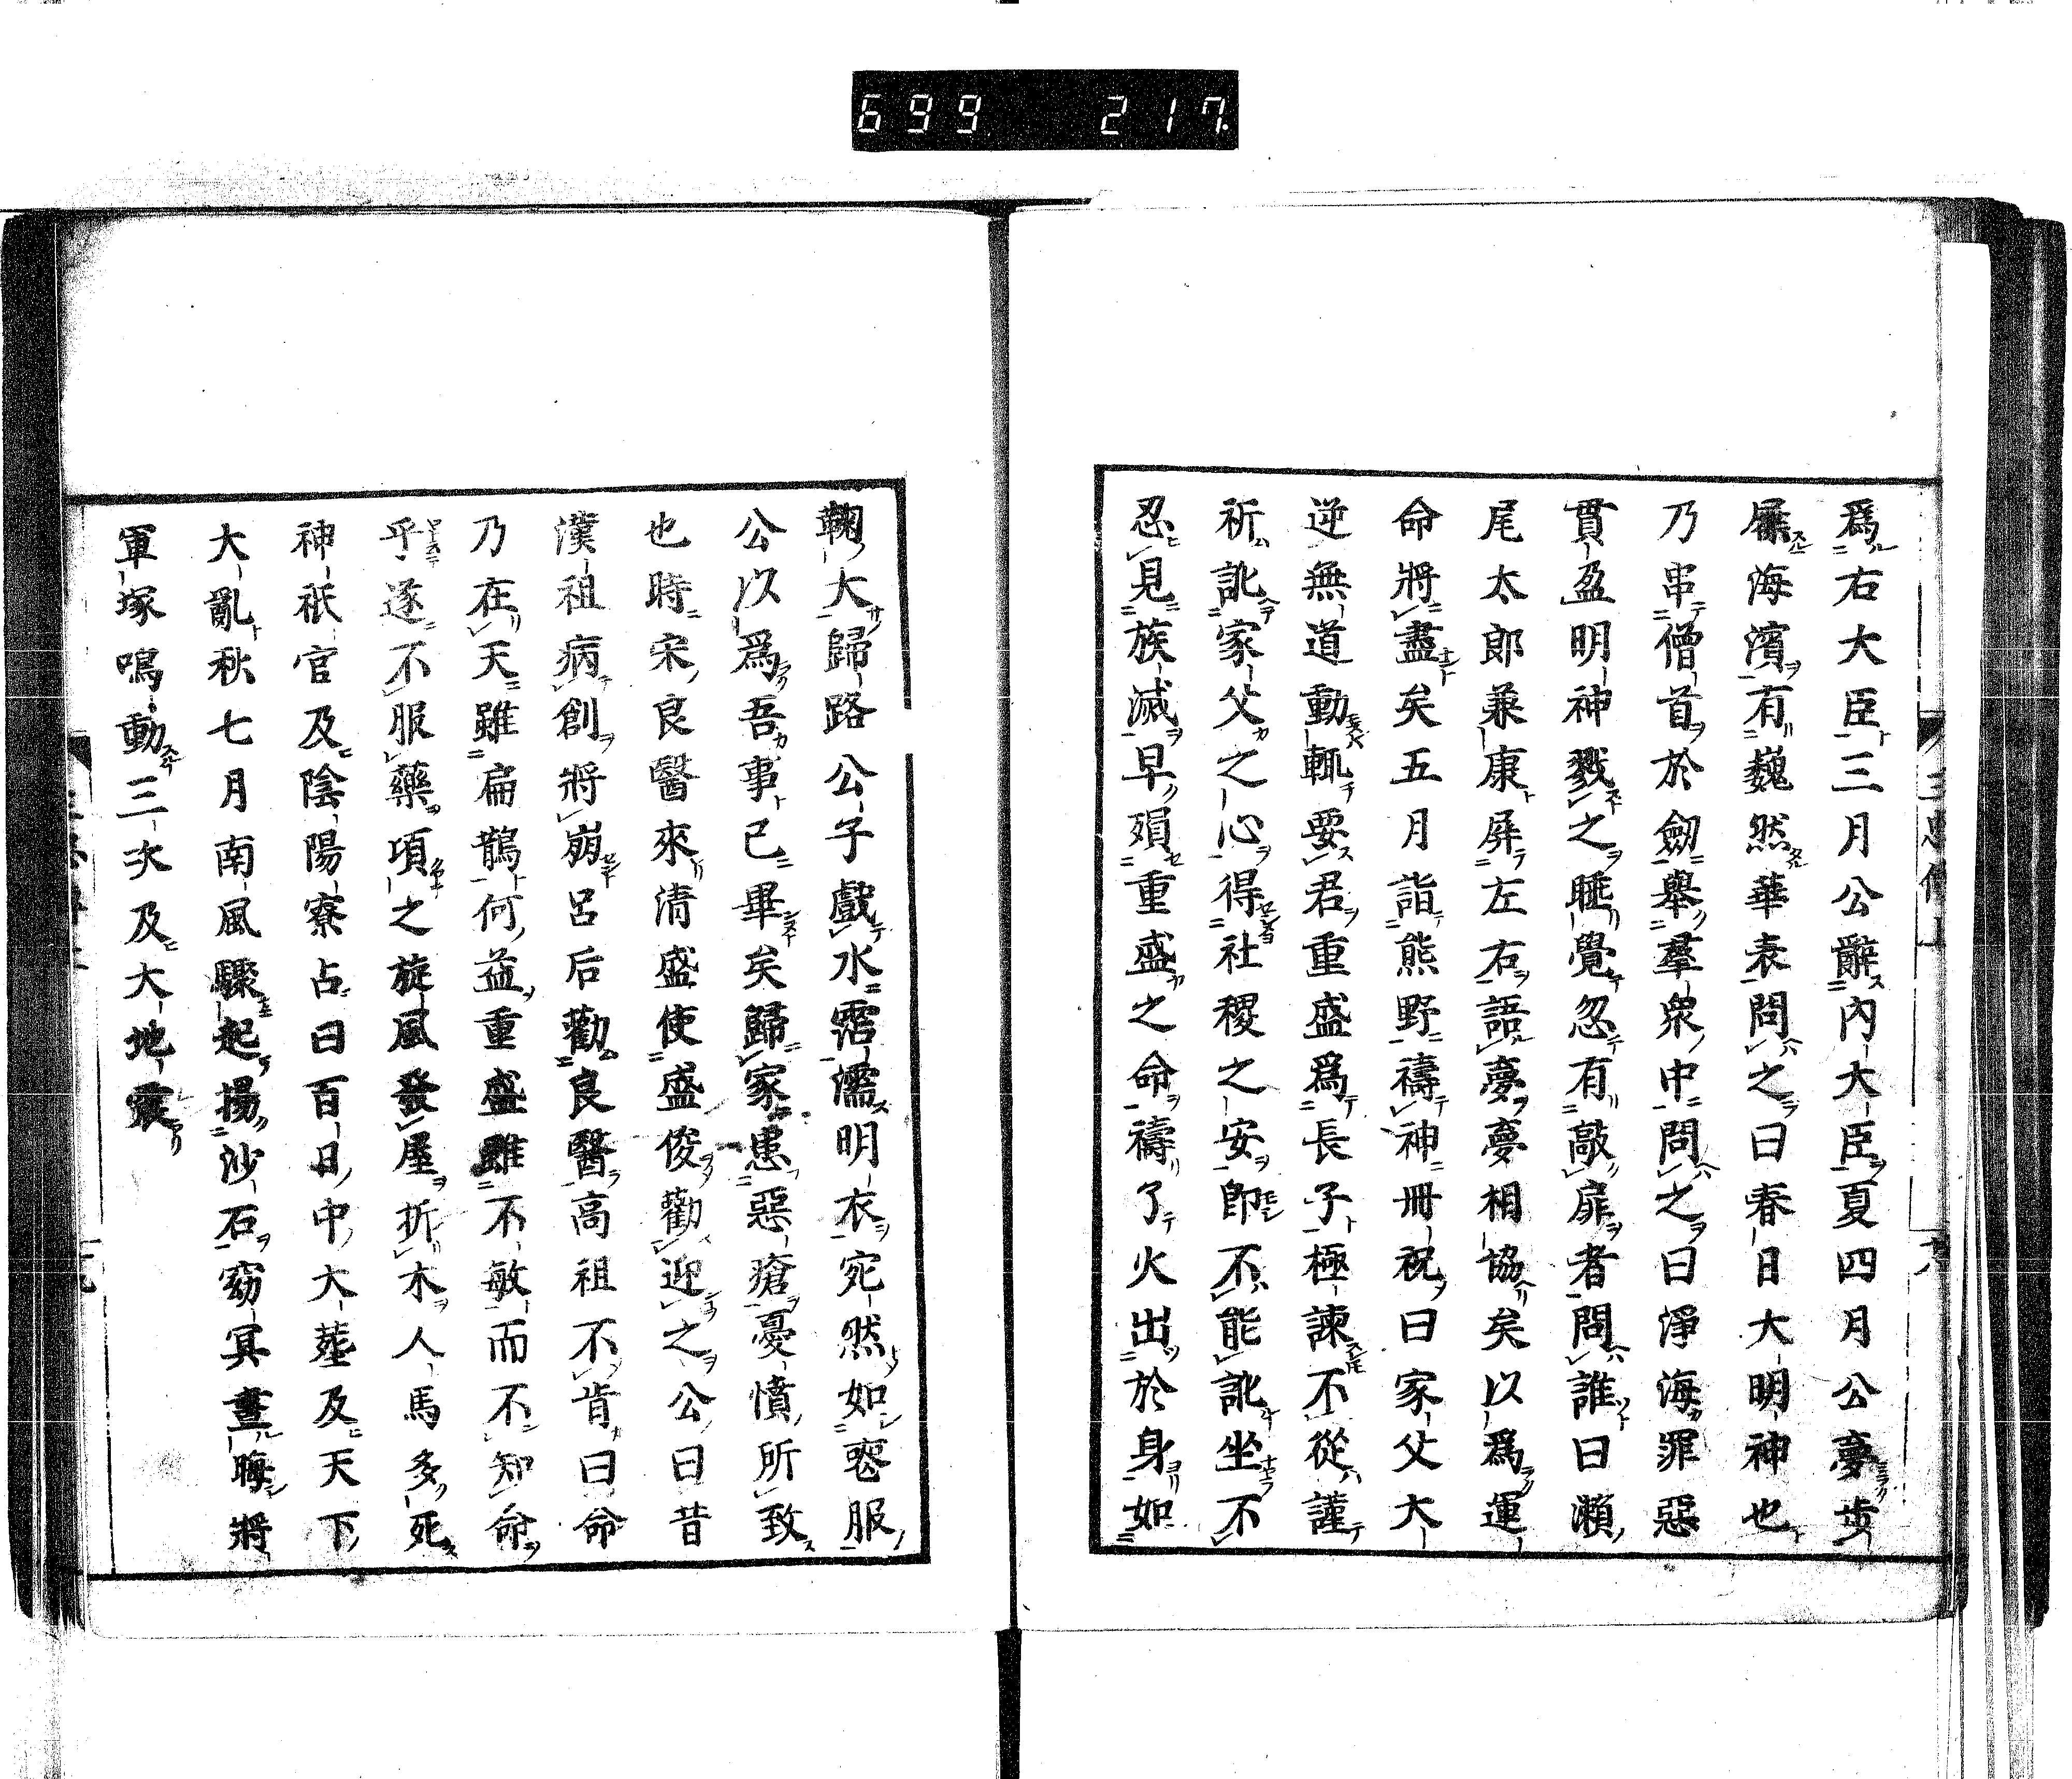 699 217
爲右大臣三月公辭內大臣夏四月公夢步
屧海濱有巍然華表問之曰春日大明神也
乃串僧首於劒舉羣衆中問之曰淨海罪惡
貫盈明神戮之睡覺忽有敲扉者問誰曰瀬
尾太郎兼康屏左右語夢夢相協矣以爲運
命將盡矣五月詣熊野禱神冊祝曰家父大
逆無道動輒要君重盛爲長子極諫不從謹
祈訛家父之心得社稷之安卽不能訛坐不
忍見族滅早殞重盛之命禱了火出於身如
鞠大歸路公子戲水霑濡明衣宛然如喪服
公以爲吾事已畢矣歸家患惡瘡憂憤所致
也時宋良醫來清盛使盛俊勸迎之公曰昔
漢祖病創將崩呂后勸良醫高祖不肯曰命
乃在天雖扁鵲何益重盛雖不敏而不知命
乎遂不服藥項之旋風發屋折木人馬多死
神祇官及陰陽寮占曰百日中大葬及天下
大亂秋七月南風驟起揚沙石窈冥晝晦將
軍塚鳴動三次及大地震